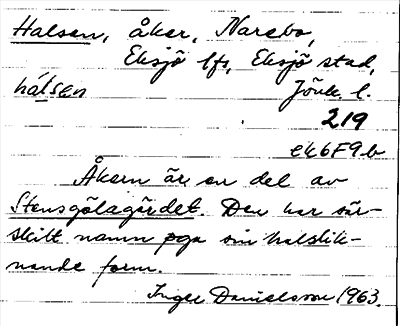 Halsen, åker, Narebo,
Eksjö lfs, Eksjö stad,
hálsen Jönk. l.
219
ek6F9b
Åkern är en del av
Stensgölagärdet. Den har sär-
skilt namn pga sin halslik-
nande form.
Inger Danielsson 1963.